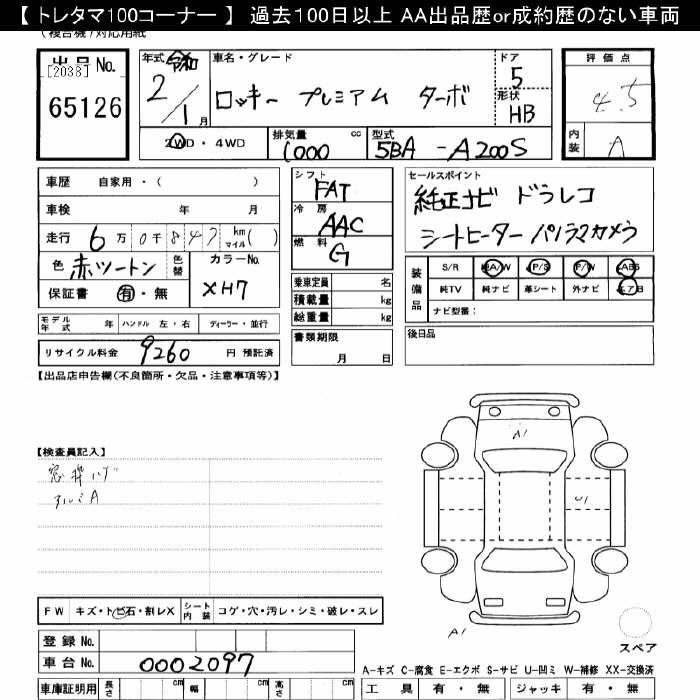 【 トレタマ100コーナー 】 過去100日以上 AA出品歴or成約歴のない車両
(複合機)対応用紙
出品No.
[2038]
65126
年式 令和
2/1月
車名・グレード
ロッキー プレミアム ターボ
ドア
5
形状
HB
評価点
4.5
内装
A
2WD・4WD
排気量 cc
1000
型式
5BA -A200S
車歴 自家用・( )
車検 年 月
走行 6万0千847 km マイル( )
色 赤ツートン 色替
カラーNo.
XH7
保証書 有・無
シフト
FAT
冷房
AAC
燃料
G
セールスポイント
純正ナビ ドラレコ
シートヒーター パノラマカメラ
装備品
S/R A/W P/S P/W ABS
純TV 純ナビ 革シート 外ナビ エアB
ナビ型番:
乗車定員 名
積載量 kg
総重量 kg
モデル年式 年 ハンドル 左・右 ディーラー・並行
リサイクル料金 9260 円 預託済
書類期限
月 日
後日品
【出品店申告欄(不良箇所・欠品・注意事項等)】
【検査員記入】
窓枠ハゲ
アルミA
A1
U1
A1
スペア
FW キズ・トビ石・割レX
シート内装 コゲ・穴・汚レ・シミ・破レ・スレ
登録No.
車台No. 0002097
A-キズ C-腐食 E-エクボ S-サビ U-凹ミ W-補修 XX-交換済
車庫証明用 長さ cm 幅 cm 高さ cm
工具 有・無 ジャッキ 有・無